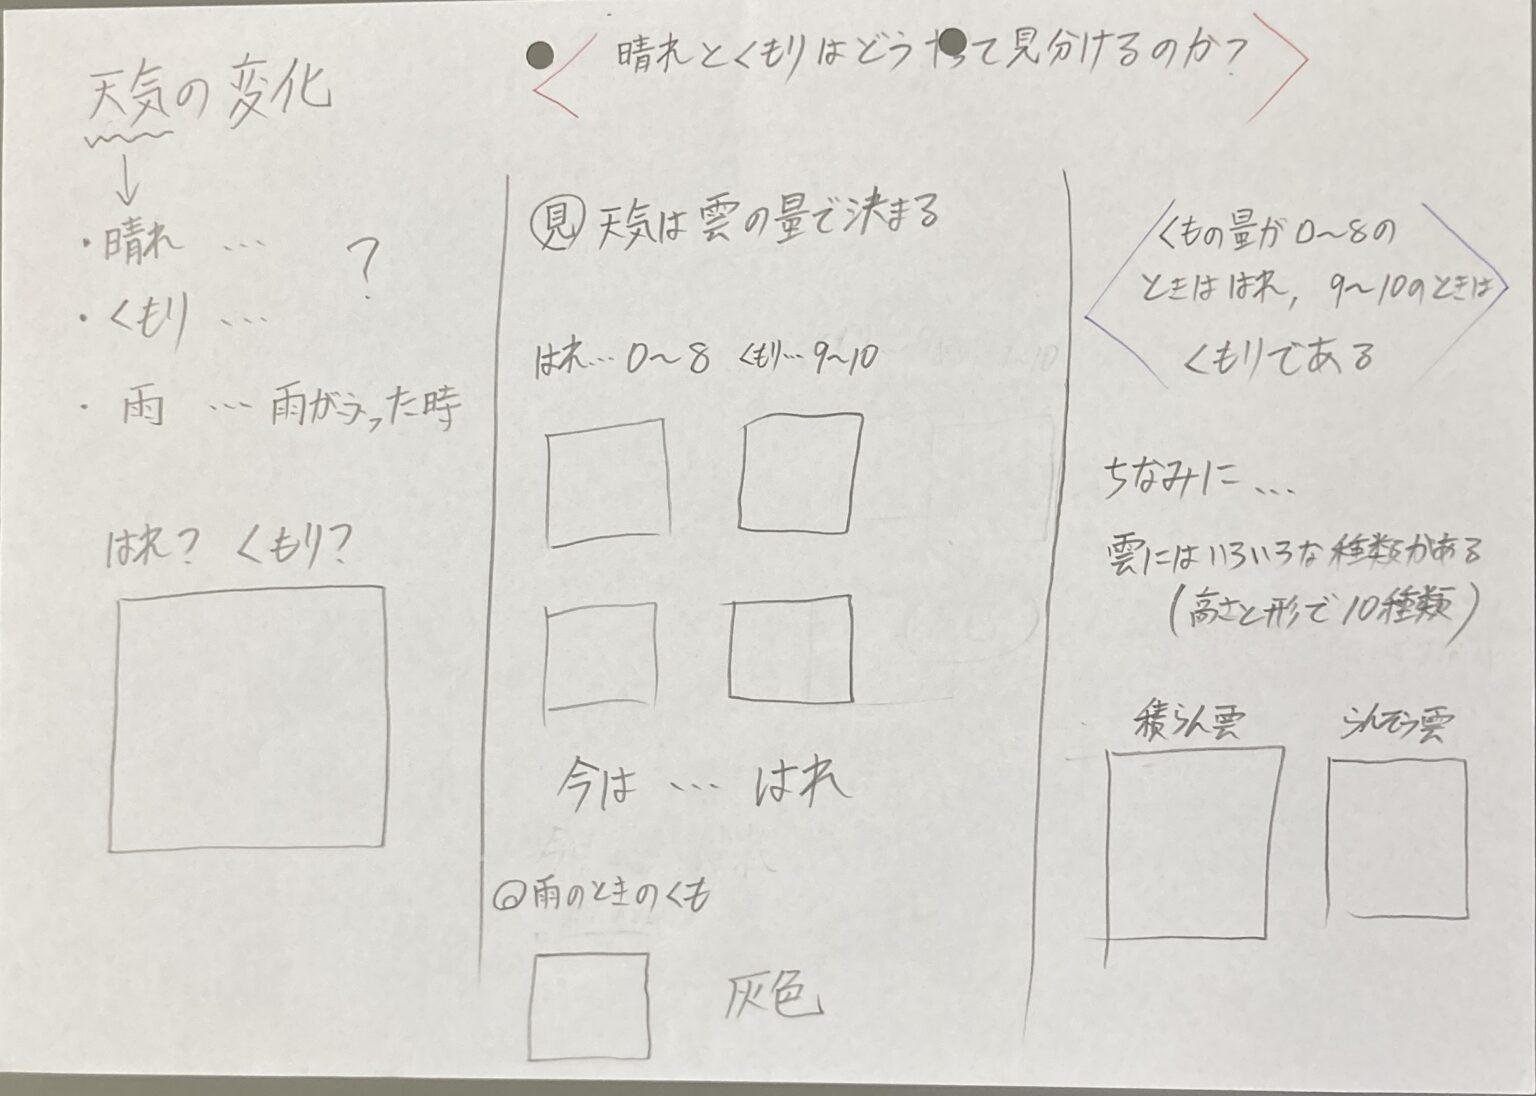 天気の変化
晴れとくもりはどうやって見分けるのか？
・晴れ … ？
・くもり …
・雨 … 雨がふった時
はれ？ くもり？
見 天気は雲の量で決まる
はれ…0～8 くもり…9～10
今は … はれ
◎雨のときのくも
灰色
くもの量が0～8の
ときははれ, 9～10のときは
くもりである
ちなみに…
雲にはいろいろな種類がある
(高さと形で10種類)
積らん雲 らんそう雲